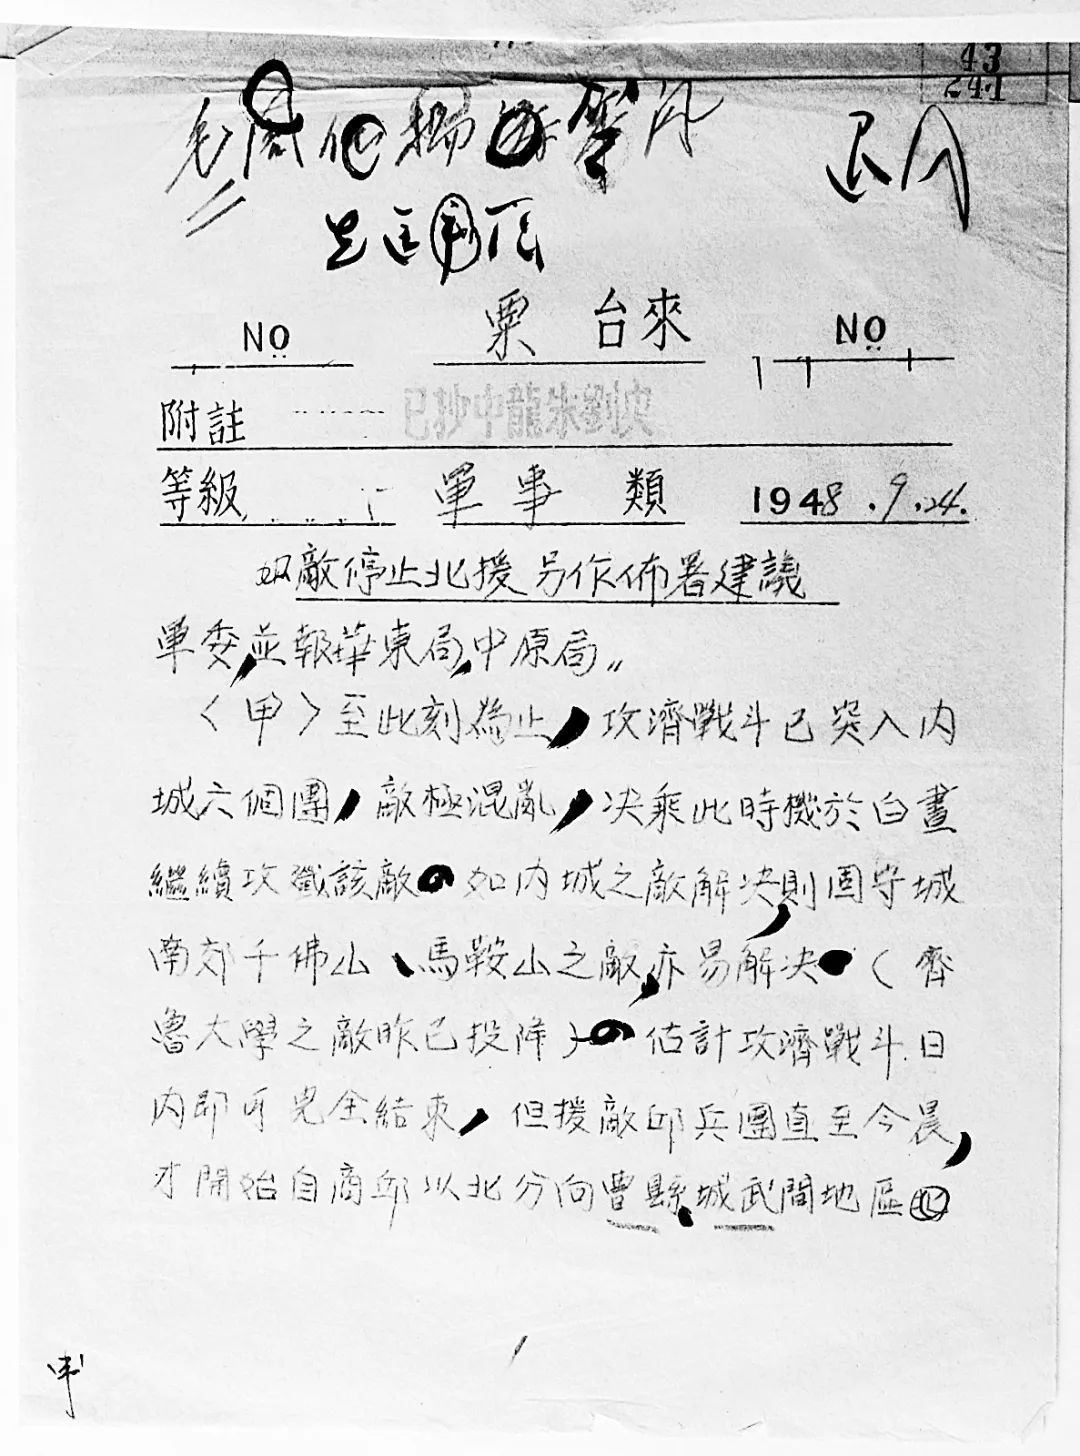 43
241
毛 周
退 周
NO 粟 台來 NO
附註 已抄中龍朱劉央
等級 軍事類 1948.9.24.
如敵停止北援另作佈署建議
軍委,並報華東局,中原局。
〈甲〉至此刻為止,攻濟戰斗已突入内
城六個團,敵極混亂,决乘此時機於白晝
繼續攻殲該敵。如内城之敵解决,則固守城
南郊千佛山、馬鞍山之敵,亦易解决。(齊
魯大學之敵昨已投降)。估計攻濟戰斗日
内即可完全結束,但援敵邱兵團直至今晨,
才開始自商邱以北分向曹縣、城武間地區